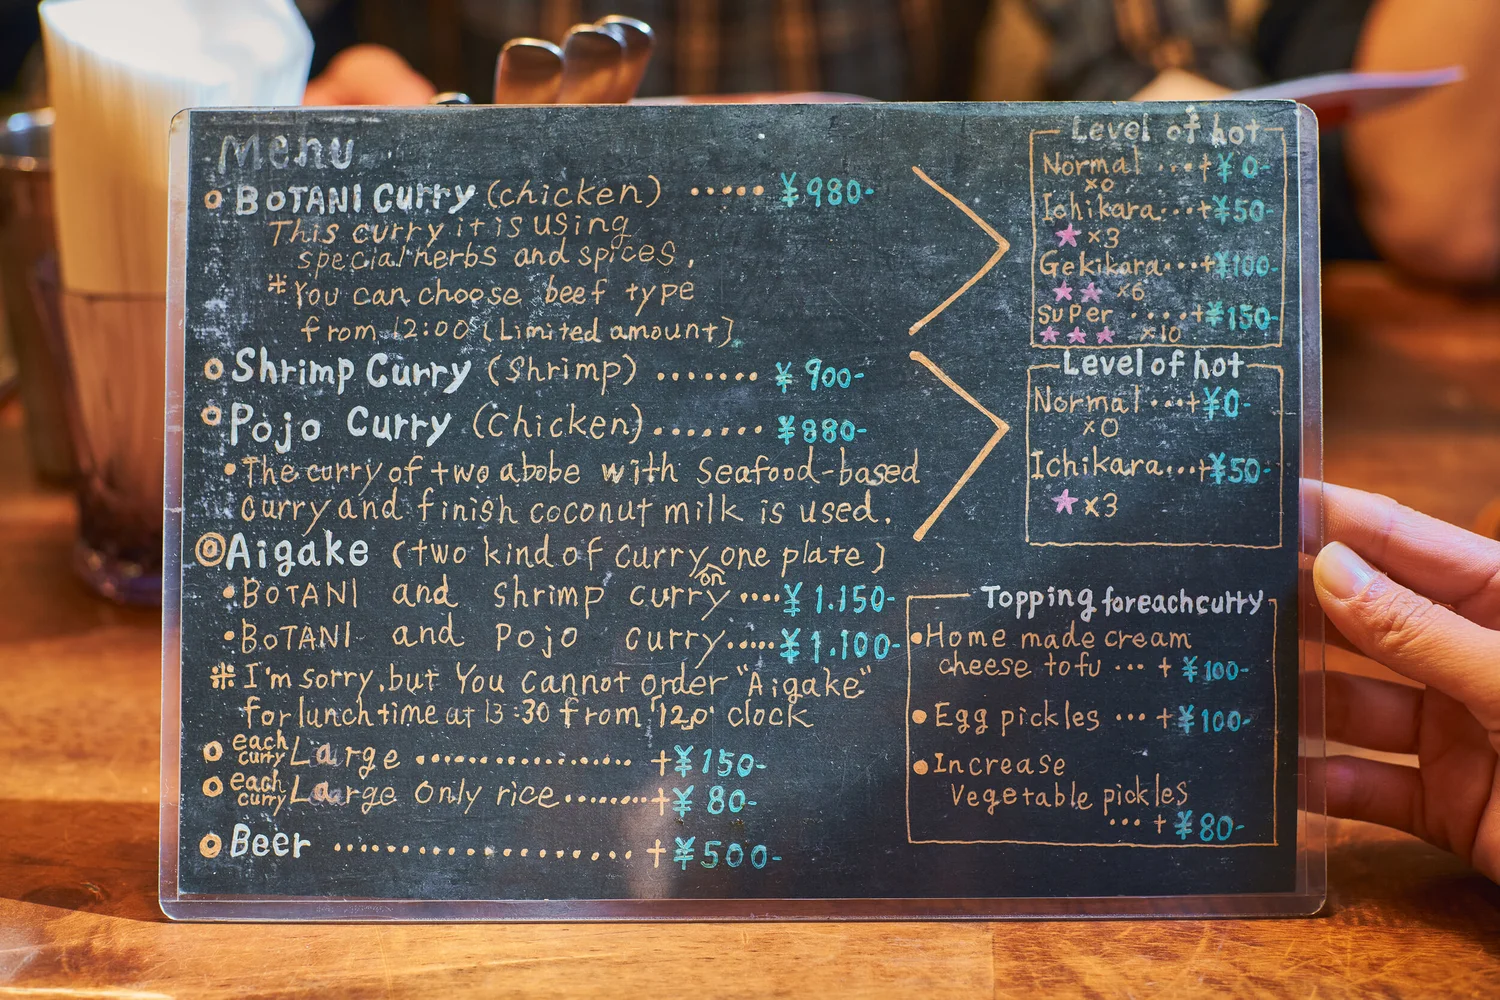 Menu
BOTANI Curry (chicken) ..... ¥980-
This curry it is using
special herbs and spices.
※You can choose beef type
from 12:00 (Limited amount)
Shrimp Curry (Shrimp) ....... ¥900-
Pojo Curry (Chicken)....... ¥880-
•The curry of two abobe with Seafood-based
curry and finish coconut milk is used.
Aigake (two kind of curry on one plate)
•BOTANI and Shrimp curry....¥1.150-
•BOTANI and Pojo curry.....¥1.100-
※I'm sorry, but You cannot order "Aigake"
for lunch time at 13:30 from 12 o' clock
each curry Large .................. +¥150-
each curry Large only rice.........+¥80-
Beer ..................+¥500-
Level of hot
Normal ....+¥0-
×0
Ichikara...+¥50-
★×3
Gekikara...+¥100-
★★ ×6
Super .....+¥150-
★★★ ×10
Level of hot
Normal ....+¥0-
×0
Ichikara...+¥50-
★×3
Topping for each curry
•Home made cream
cheese tofu ... +¥100-
•Egg pickles ... +¥100-
•Increase
Vegetable pickles
... +¥80-